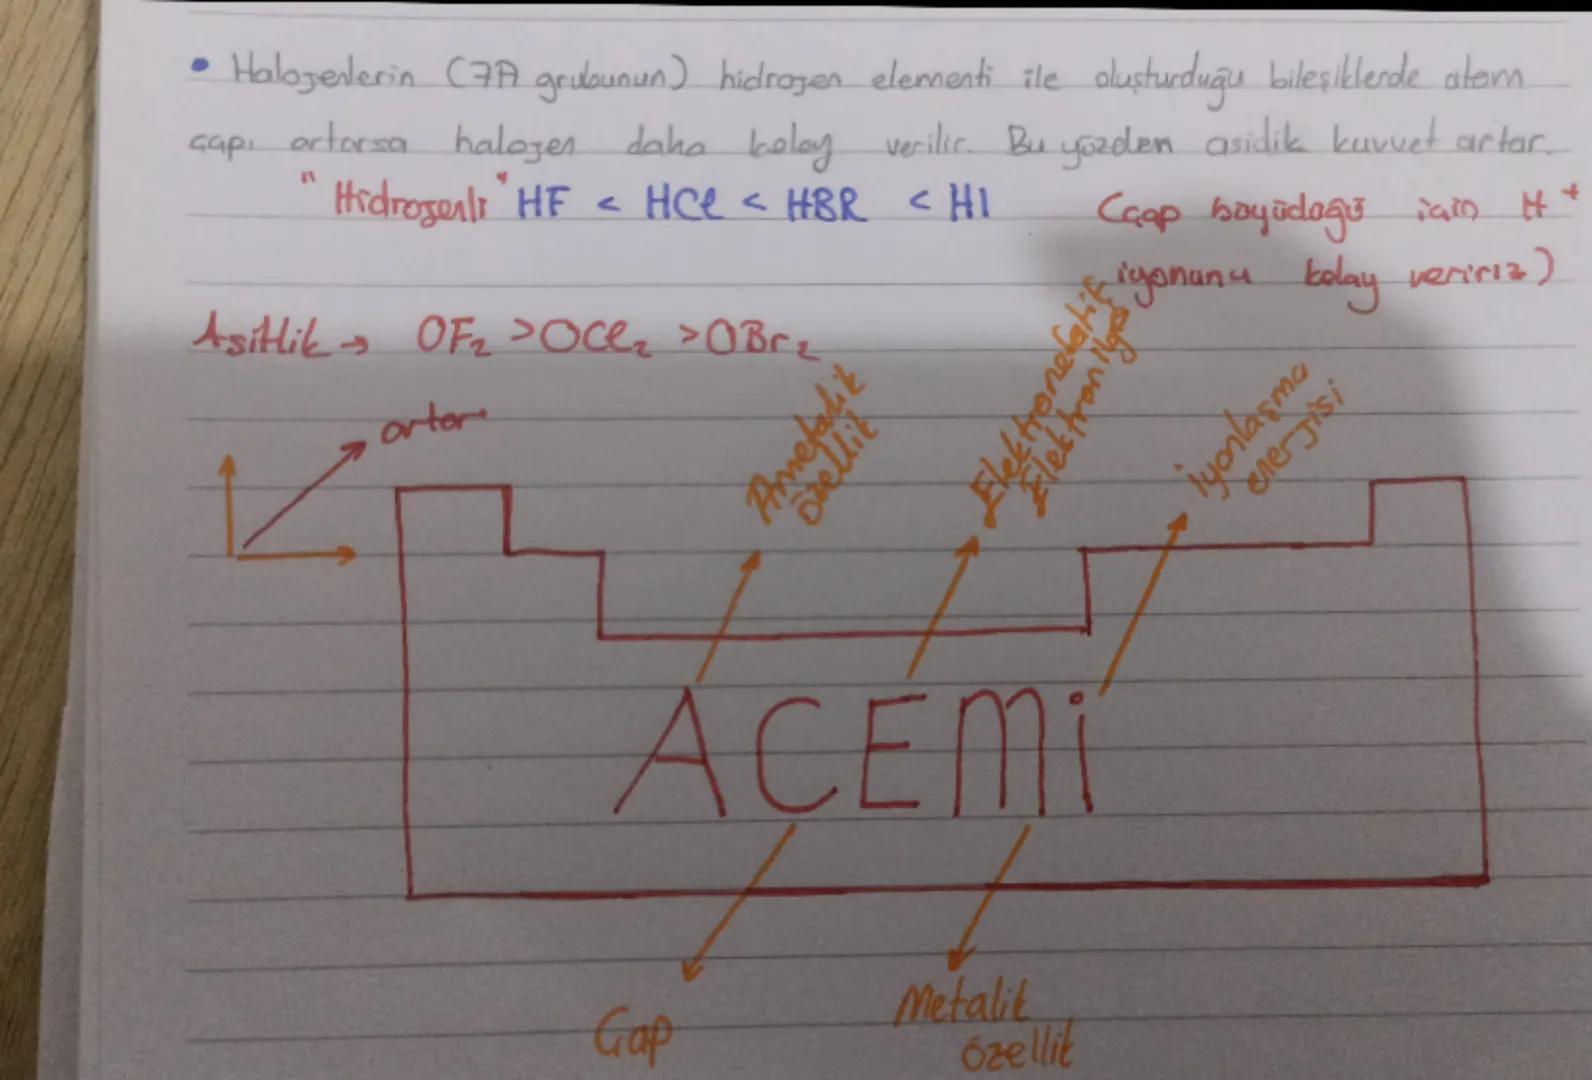 • Halojenlerin (7A grubunun) hidrojen elementi ile oluşturduğu bileşiklerde atom
çapı artarsa halojen daha kolay verilir. Bu yüzden asidik kuvvet artar.
"Hidrojenli" HF < HCl < HBR < HI (Çap büyüdüğü için H+
iyonunu kolay veririz)
Asitlik → OF2 > OCl2 > OBr2
artar
Ametalik
özellik
Elektronegatiflik
Elektron ilgisi
İyonlaşma
enerjisi
ACEMi
Çap
Metalik
özellik